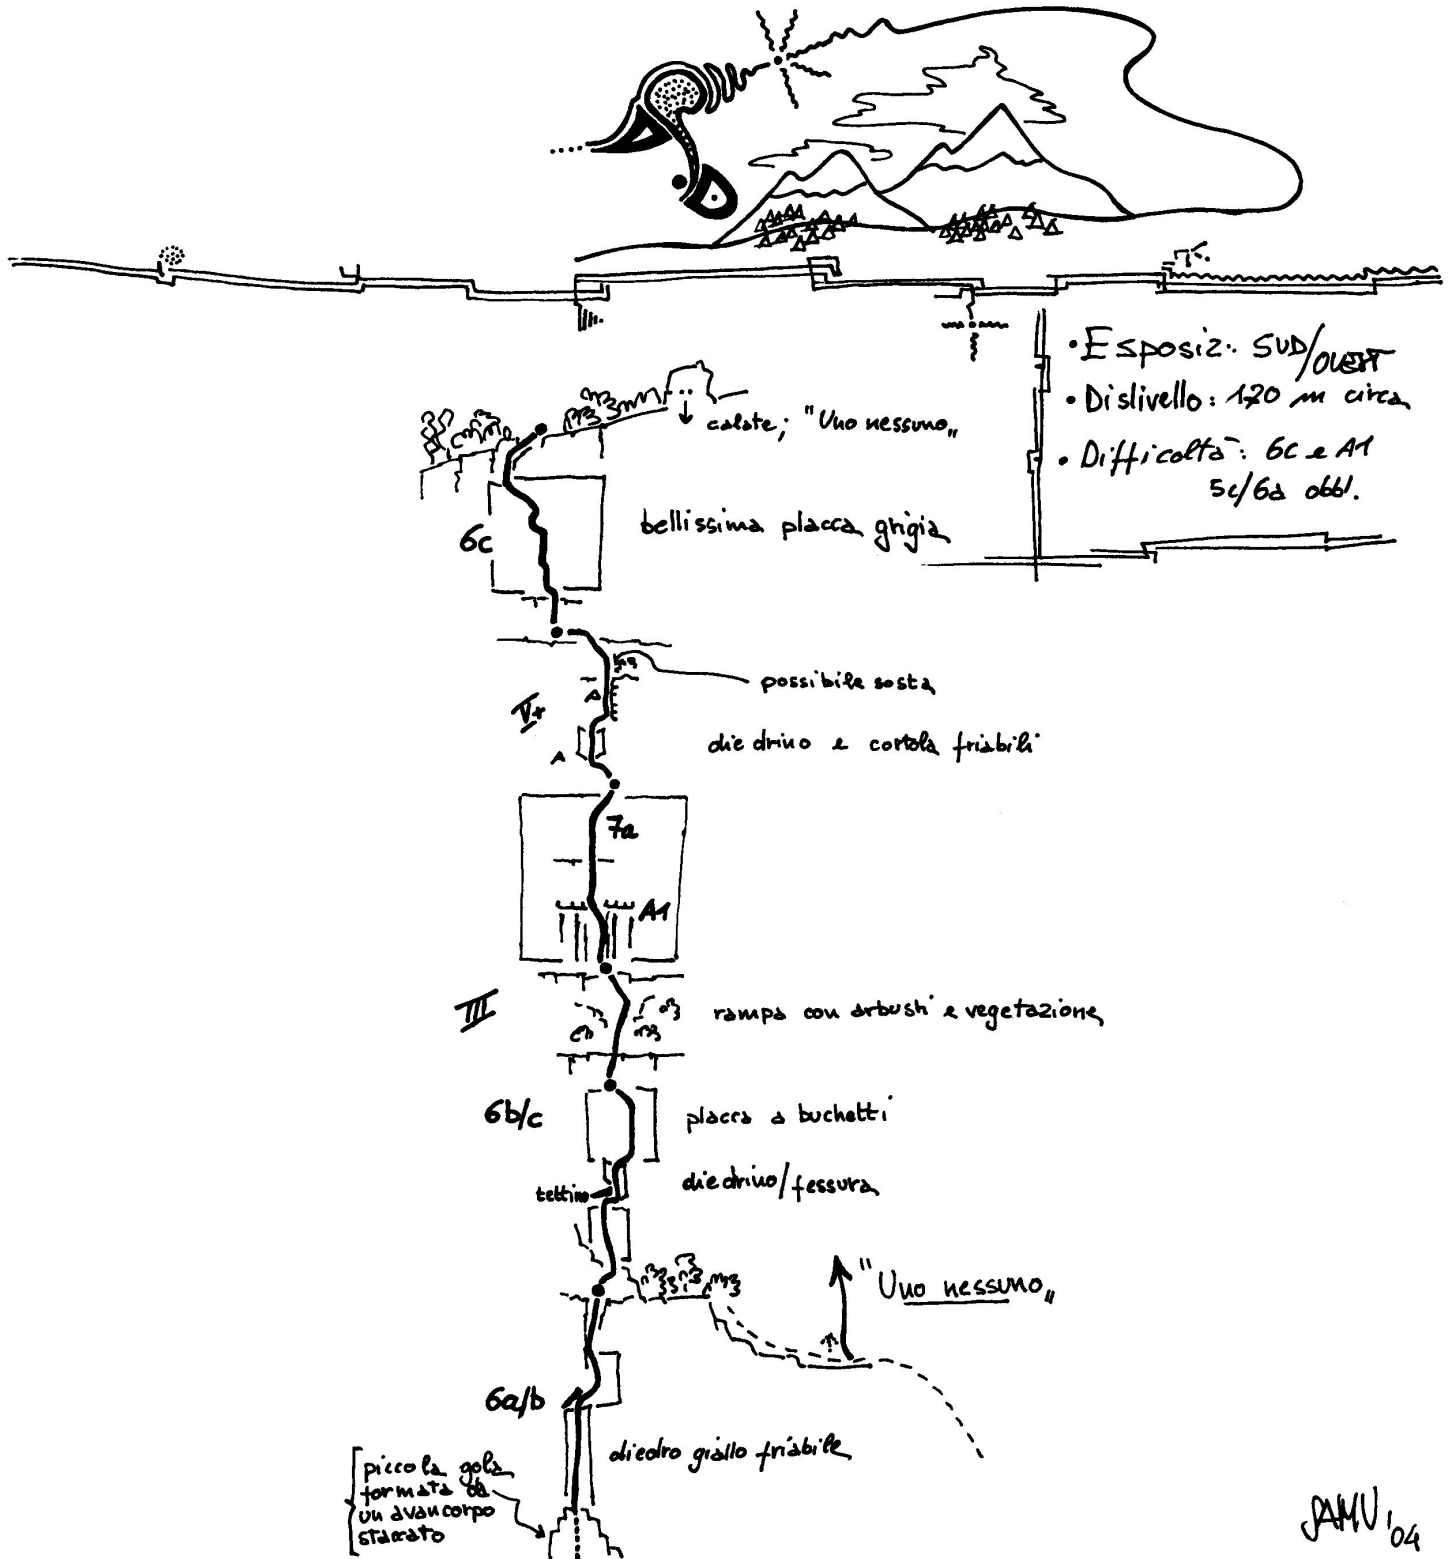 • Esposiz.: SUD/OVEST
• Dislivello: 120 m circa
• Difficoltà: 6c e A1
5c/6a obbl.
calate; "Uno nessuno„
6c
bellissima placca grigia
possibile sosta
V+
diedrino e cortola friabili
7a
A1
III
rampa con arbusti e vegetazione
6b/c
placca a buchetti
tettino
diedrino/fessura
"Uno nessuno„
6a/b
diedro giallo friabile
piccola gola
formata da
un avancorpo
staccato
SAMU '04